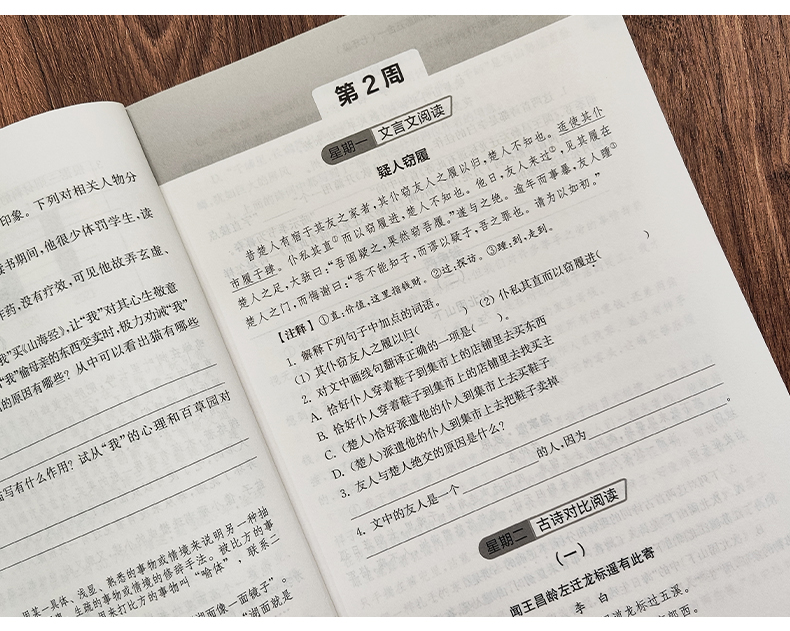 印象。下列对相关人物分
书期间，他很少体罚学生，读
炸药，没有疗效，可见他故弄玄虚、
我”买《山海经》，让“我”对其心生敬意
“我”偷母亲的东西变卖时，极力劝诫“我”
的原因有哪些？从中可以看出猫有哪些
写有什么作用？试从“我”的心理和百草园对
用某一具体、浅显、熟悉的事物或情境来说明另一种抽
生疏的事物或情境的修辞手法。被比方的事
用来打比方的事物叫“喻体”，联系二
湖面像一面镜子”。
“湖面就是
第2周
星期一 文言文阅读
疑人窃履
昔楚人有宿于其友之家者，其仆窃友人之履以归，楚人不知也。适使其仆
市履于肆，仆私其直①而以窃履进，楚人不知也。他日，友人来过②，见其履在
楚人之足，大骇曰：“吾固疑之，果然窃吾履。”遂与之绝。逾年而事暴，友人踵③
楚人之门，而悔谢曰：“吾不能知子，而谬以疑子，吾之罪也。请为以如初。”
【注释】①直：价值，这里指钱财。②过：探访。③踵：到，走到。
1. 解释下列句子中加点的词语。
(1) 其仆窃友人之履以归( ) (2) 仆私其直而以窃履进( )
2. 对文中画线句翻译正确的一项是( )。
A. 恰好仆人穿着鞋子到集市上的店铺里去买东西
B. 恰好仆人穿着鞋子到集市上的店铺里去找买主
C. (楚人)恰好派遣他的仆人到集市上去买鞋子
D. (楚人)派遣他的仆人到集市上去把鞋子卖掉
3. 友人与楚人绝交的原因是什么？
4. 文中的友人是一个 的人，因为 。
星期二 古诗对比阅读
(一)
闻王昌龄左迁龙标遥有此寄
李 白
龙标过五溪。
郎西。